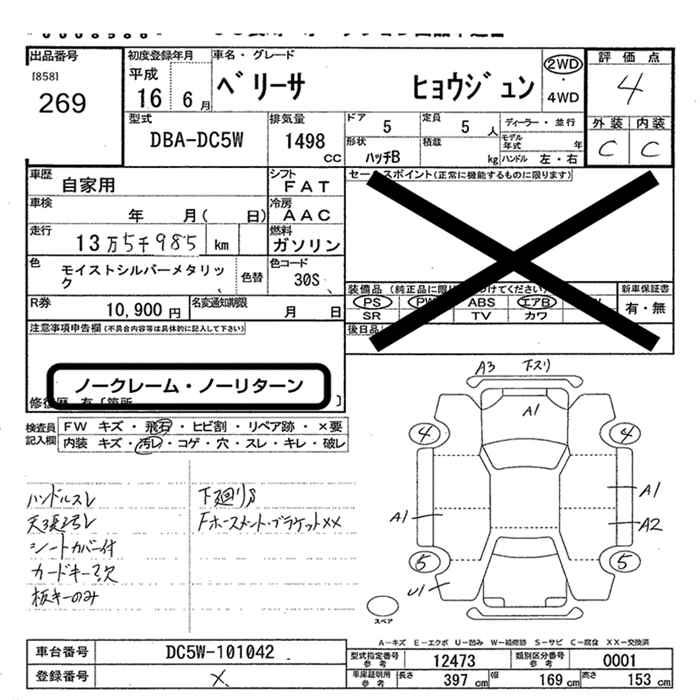 出品番号
[858]
269
初度登録年月
平成
16 6月
車名・グレード
ベリーサ ヒョウジュン
2WD
・
4WD
評価点
4
外装 内装
C C
型式
DBA-DC5W
排気量
1498
CC
ドア
5
定員
5人
ディーラー・並行
モデル年式 年
形状
ハッチB
積載
kg
ハンドル 左・右
車歴
自家用
シフト
FAT
車検
年 月( 日)
冷房
AAC
走行
13万5千985 km
燃料
ガソリン
色
モイストシルバーメタリック
色替
色コード
30S
R券
10,900円
名変通知期限
月 日
セールスポイント(正常に機能するものに限ります)
新車保証書
有・無
PS
ABS
エアB
SR
TV
カワ
注意事項申告欄(不具合内容等は具体的に記入して下さい)
ノークレーム・ノーリターン
検査員記入欄
FW キズ・飛石・ヒビ割・リペア跡・×要
内装 キズ・汚レ・コゲ・穴・スレ・キレ・破レ
ハンドルスレ
シートカバー付
カードキー欠
板キーのみ
下廻りS
A3 下スリ
A1
4 4
A1
A1
A2
5 5
U1
スペア
A-キズ E-エクボ U-凹み W-補修跡 S-サビ C-腐食 XX-交換済
車台番号
DC5W-101042
登録番号
×
型式指定番号
参考
12473
類別区分番号
参考
0001
車庫証明用
参考
長さ
397 cm
幅
169 cm
高さ
153 cm